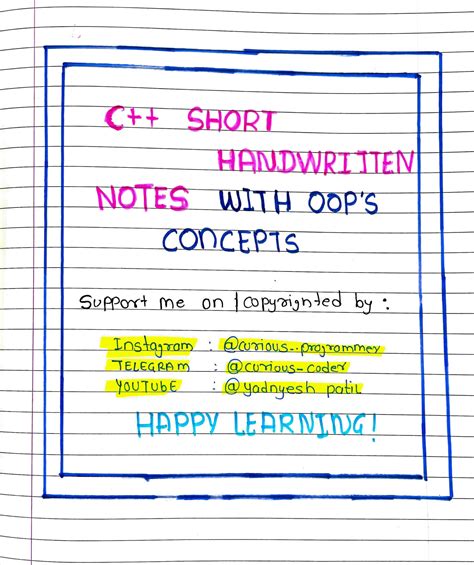 C++ SHORT
HANDWRITTEN
NOTES WITH OOP'S
CONCEPTS
Support me on | copyrighted by :
Instagram : @curious_.programmer
TELEGRAM : @curious-coder
YOUTUBE : @yadnyesh patil
HAPPY LEARNING!